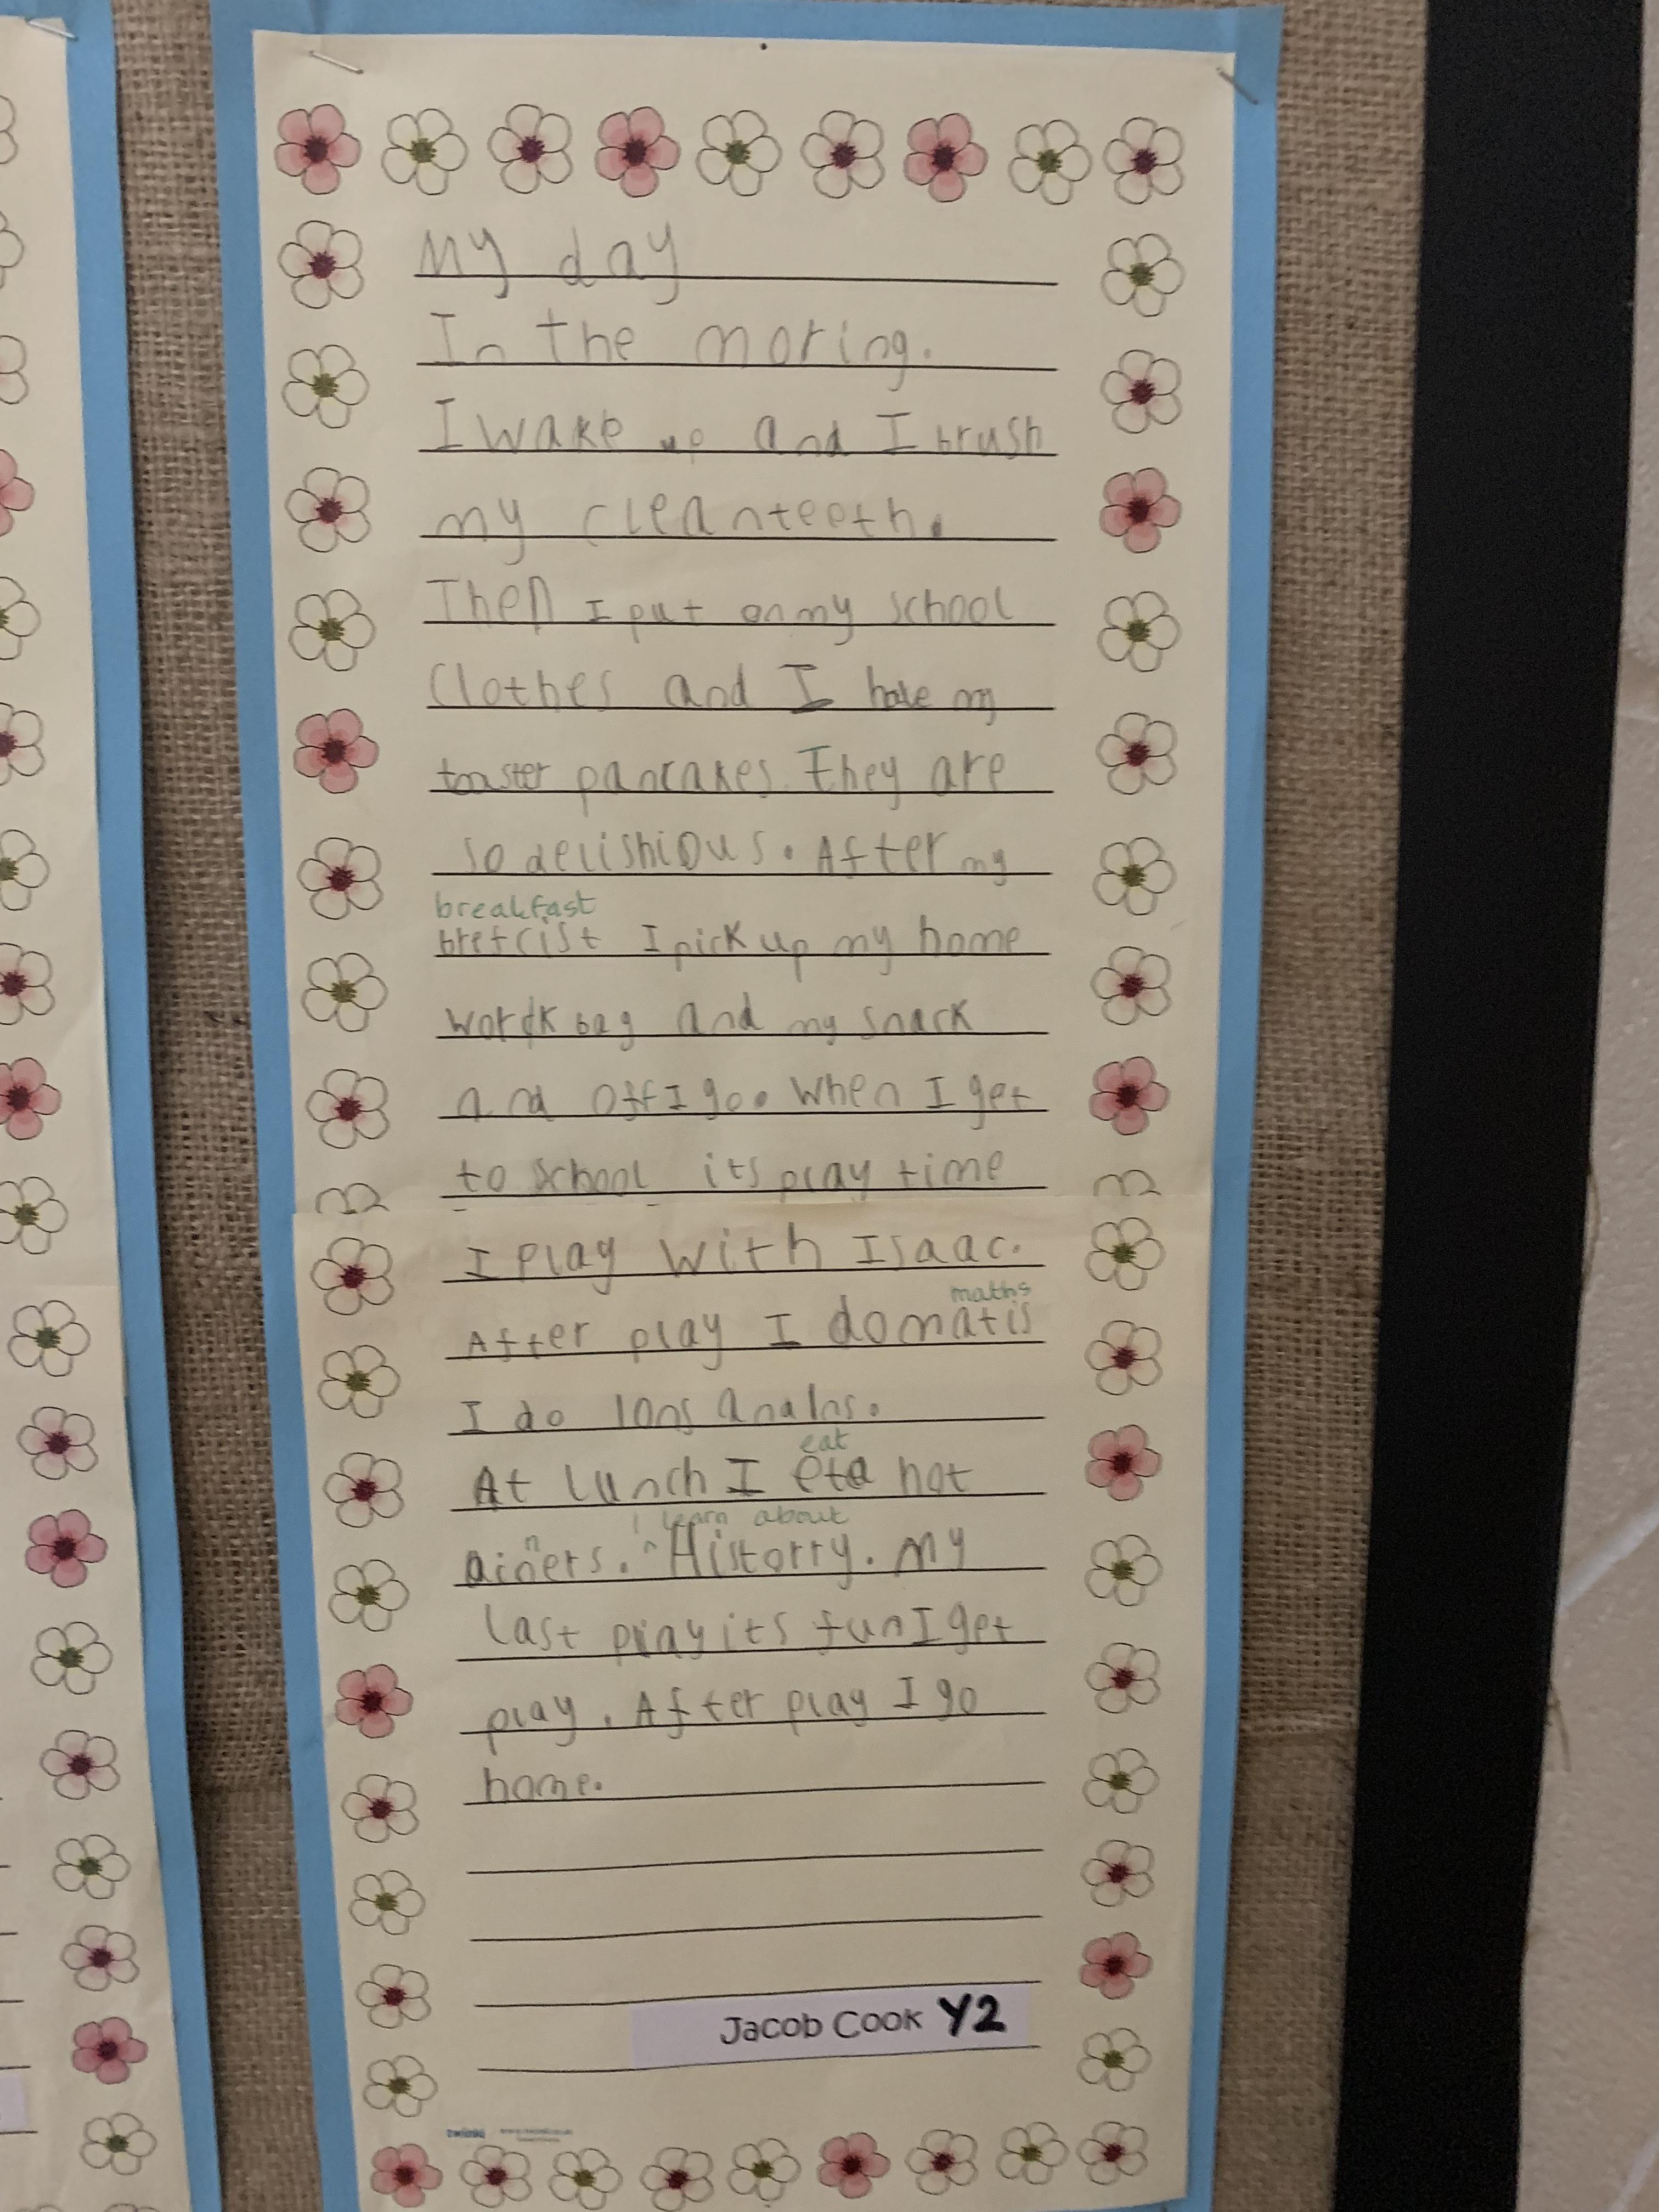 My day
In the moring.
I wake up and I brush
my clean teeth.
Then I put on my school
Clothes and I have my
toaster pancakes. They are
so delishious. After my
breakfast
brefcist I pick up my home
work bag and my snack
and off I go. When I get
to school its play time
I play with Isaac.
maths
After play I do matis
I do
eat
At lunch I eta hot
I learn about
n
ainers. ^ Historry. My
last play its fun I get
play. After play I go
home.
Jacob Cook Y2
twinkl